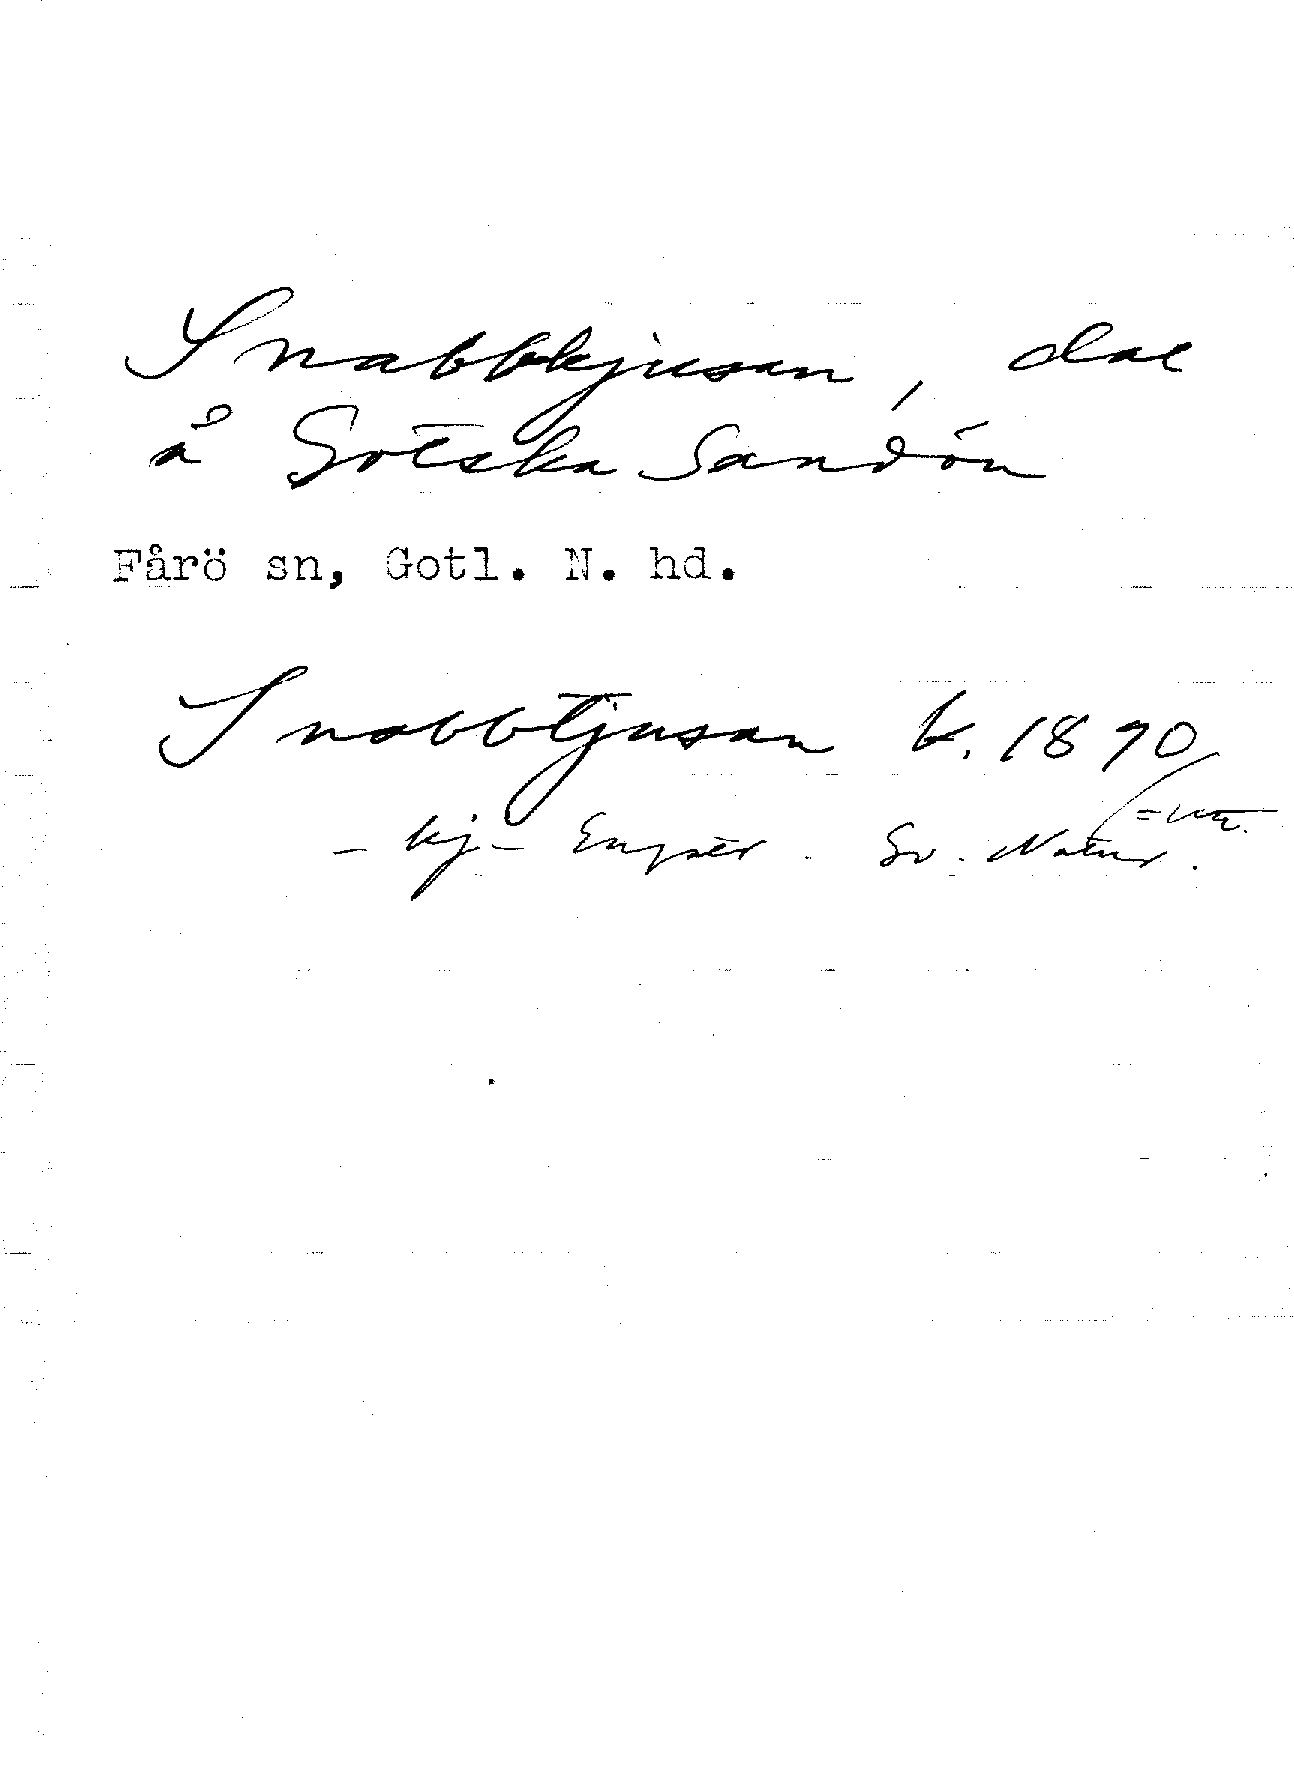 Snabbkjusan, dal
å Gotska Sandön
Fårö sn, Gotl. N. hd.
Snabbtjusan k. 1890
- kj - Sv. Natur.